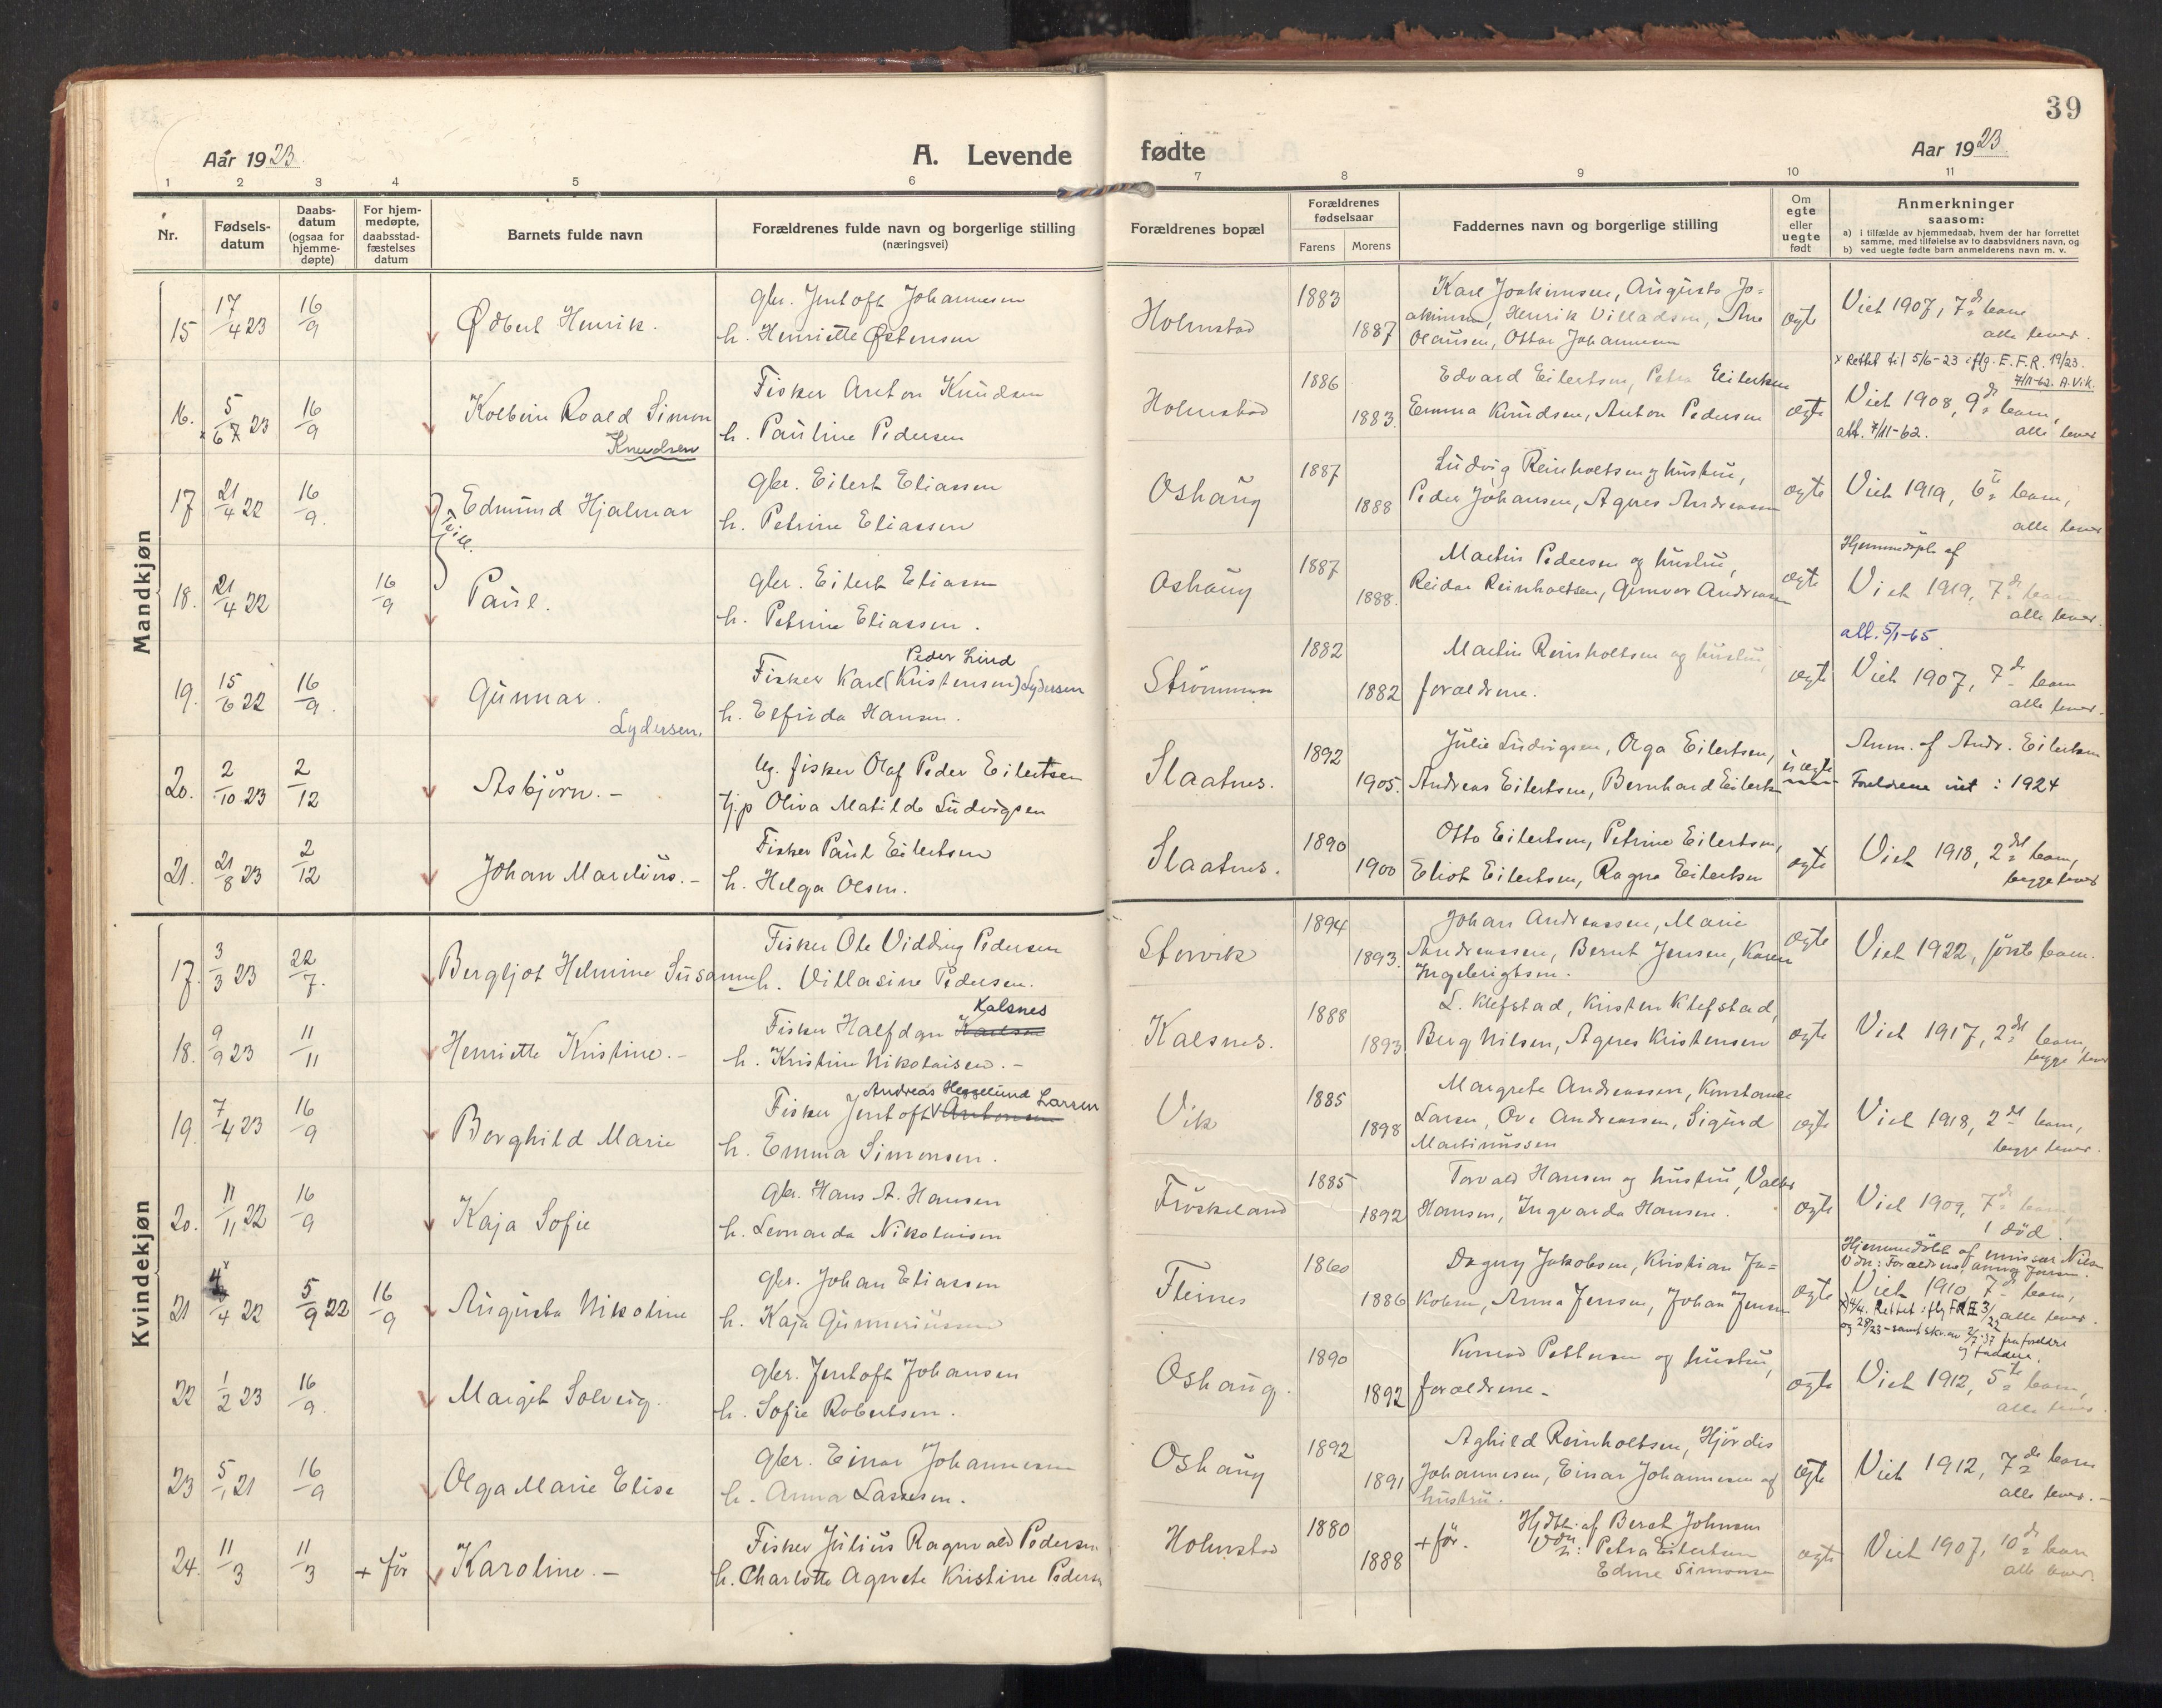 39
Aar 1923. A. Levende fødte Aar 1923
1 2 3 4 5 6 7 8 9 10 11
Nr.
Fødsels-
datum
Daabs-
datum
(ogsaa for
hjemme-
døpte)
For hjem-
medøpte,
daabsstad-
fæstelses
datum
Barnets fulde navn
Forældrenes fulde navn og borgerlige stilling
(næringsvei)
Forældrenes bopæl
Forældrenes
fødselsaar
Farens Morens
Faddernes navn og borgerlige stilling
Om
egte
eller
uegte
født
Anmerkninger
saasom:
a) i tilfælde av hjemmedaab, hvem der har forrettet
samme, med tilføielse av to daabsvidners navn, og
b) ved uegte fødte barn anmelderens navn m. v.
Mandkjøn
15 17/4 23 16/9 Ødbert Henrik.
gbr. Jentoft Johannesen
h. Henriette Østensen
Holmstad 1883 1887
Karl Joakimsen, Augusta Jo-
akimsen, Henrik Villadsen, Ane
Olausen, Ottar Johannesen
egte
Viet 1907, 7de barn
alle lever.
16. 5/6 7 23 16/9 Kolbein Roald Simon
Knudsen
Fisker Anton Knudsen
h. Pauline Pedersen
Holmstad 1886 1883.
Edvard Eilertsen, Petra Eilertsen
Emma Knudsen, Anton Pedersen
egte
x Rettet til 5/6-23 iflg. E.F.R. 19/23.
7/11-62. A.Vik.
Viet 1908, 9de barn,
att. 7/11-62. alle lever
17 21/4 22 16/9. Edmund Hjalmar
Tvill.
gbr. Eilert Eliassen
h. Petrine Eliassen
Oshaug 1887 1888
Ludvig Reinholtsen og hustru,
Peder Johansen, Agnes Andreassen
egte
Viet 1919, 6te barn,
alle lever
18. 21/4 22 16/9 Paul.
gbr. Eilert Eliassen
h. Petrine Eliassen.
Oshaug 1887 1888.
Martin Pedersen og hustru,
Reidar Reinholtsen, Gunvor Andreassen
egte
Hjemmedøpt af
Viet 1919, 7de barn
alle lever.
19. 15/6 22 16/9. Gunnar.
Lydersen.
Peder Lind
Fisker Karl (Kristensen) Lydersen
h. Elfrida Hansen.
Strømmen 1882 1882
Martin Reinholtsen og hustru,
forældrene.
egte
att. 5/1-65
Viet 1907, 7de barn
alle lever.
20. 2/10 23 2/12 Asbjørn. -
Ug. fisker Olaf Peder Eilertsen
tj.p Oliva Matilde Ludvigsen
Slaatnes. 1892 1905.
Julie Ludvigsen, Olga Eilertsen,
Andreas Eilertsen, Bernhard Eilertsen
uegte
Anm. af Andr. Eilertsen
Foreldrene viet : 1924
21. 21/8 23 2/12 Johan Marelius. -
Fisker Paul Eilertsen
h. Helga Olsen.
Slaatnes. 1890 1900
Otto Eilertsen, Petrine Eilertsen,
Eliot Eilertsen, Ragna Eilertsen
egte
Viet 1918, 2det barn,
begge lever
Kvindekjøn
17. 3/3 23 22/7. Bergljot Helmine Susanne
Fisker Ole Vidding Pedersen
h. Villasine Pedersen.
Stervik 1894 1893.
Johan Andreassen, Marie
Andreassen, Bernt Jensen, Karen
Ingebrigtsen.
egte
Viet 1922, første barn.
18. 9/9 23 11/11 Henriette Kristine. -
Kalsnes
Fisker Halfdan Karlsen
h. Kristine Nikolaisen. -
Kalsnes. 1888 1893
L. Klefstad, Kristen Klefstad,
Berg Nilsen, Agnes Kristensen
egte
Viet 1917, 2det barn,
begge lever
19. 7/4 23 16/9 Borghild Marie
Andreas Heggelund Larsen
Fisker Jentoft Antonsen
h. Emma Simonsen.
Vik 1885 1898
Margrete Andreassen, Konstanse
Larsen, Ove Andreassen, Sigurd
Martinussen
egte
Viet 1918, 2det barn,
begge lever.
20. 11/11 22 16/9 Kaja Sofie
gbr. Hans A. Hansen
h. Leonarda Nikolaisen
Frøskeland 1885 1892
Torvald Hansen og hustru, Valborg
Hansen, Ingvarda Hansen.
egte
Viet 1909, 7de barn,
1 død.
21 4x/4 22 5/9 22 16/9 Augusta Nikoline
gbr. Johan Eliassen
h. Kaja Gunneriussen
Fleines 1860 1886
Dagny Jakobsen, Kristian Ja-
kobsen, Anna Jensen, Johan Jensen
egte
Hjemmedøbt af emissær Nilsen
Vdn: Forældrene, Anna Jensen.
Viet 1910, 7de barn,
x) 4/4. Rettet iflg F R E 3/22 alle lever.
og 28/23 - samt skr. av 2/7.37 fra foreldre
og faddere.
22 1/2 23 16/9. Margit Solveig.
gbr. Jentoft Johansen
h. Sofie Robertsen.
Oshaug. 1890 1892
Konrad Pettersen og hustru,
forældrene. -
egte
Viet 1912, 5te barn,
alle lever.
23 5/1 21 16/9 Olga Marie Elise
gbr. Einar Johannesen
h. Anna Lassesen.
Oshaug 1892 1891
Aghild Reinholtsen, Hjørdis
Johannesen, Einar Johannesen og
hustru.
egte
Viet 1912, 7de barn
alle lever. -
24. 11/3 11/3 + før Karoline. -
Fisker Julius Ragnvald Pedersen
h. Charlotte Agnete Kristine Pedersen
Holmstad 1880 1888
+ før. Hjdbt. af Berat Johnsen
Vdn: Petra Eilertsen
Edine Simonsen
egte
Viet 1907, 10de barn
alle lever.